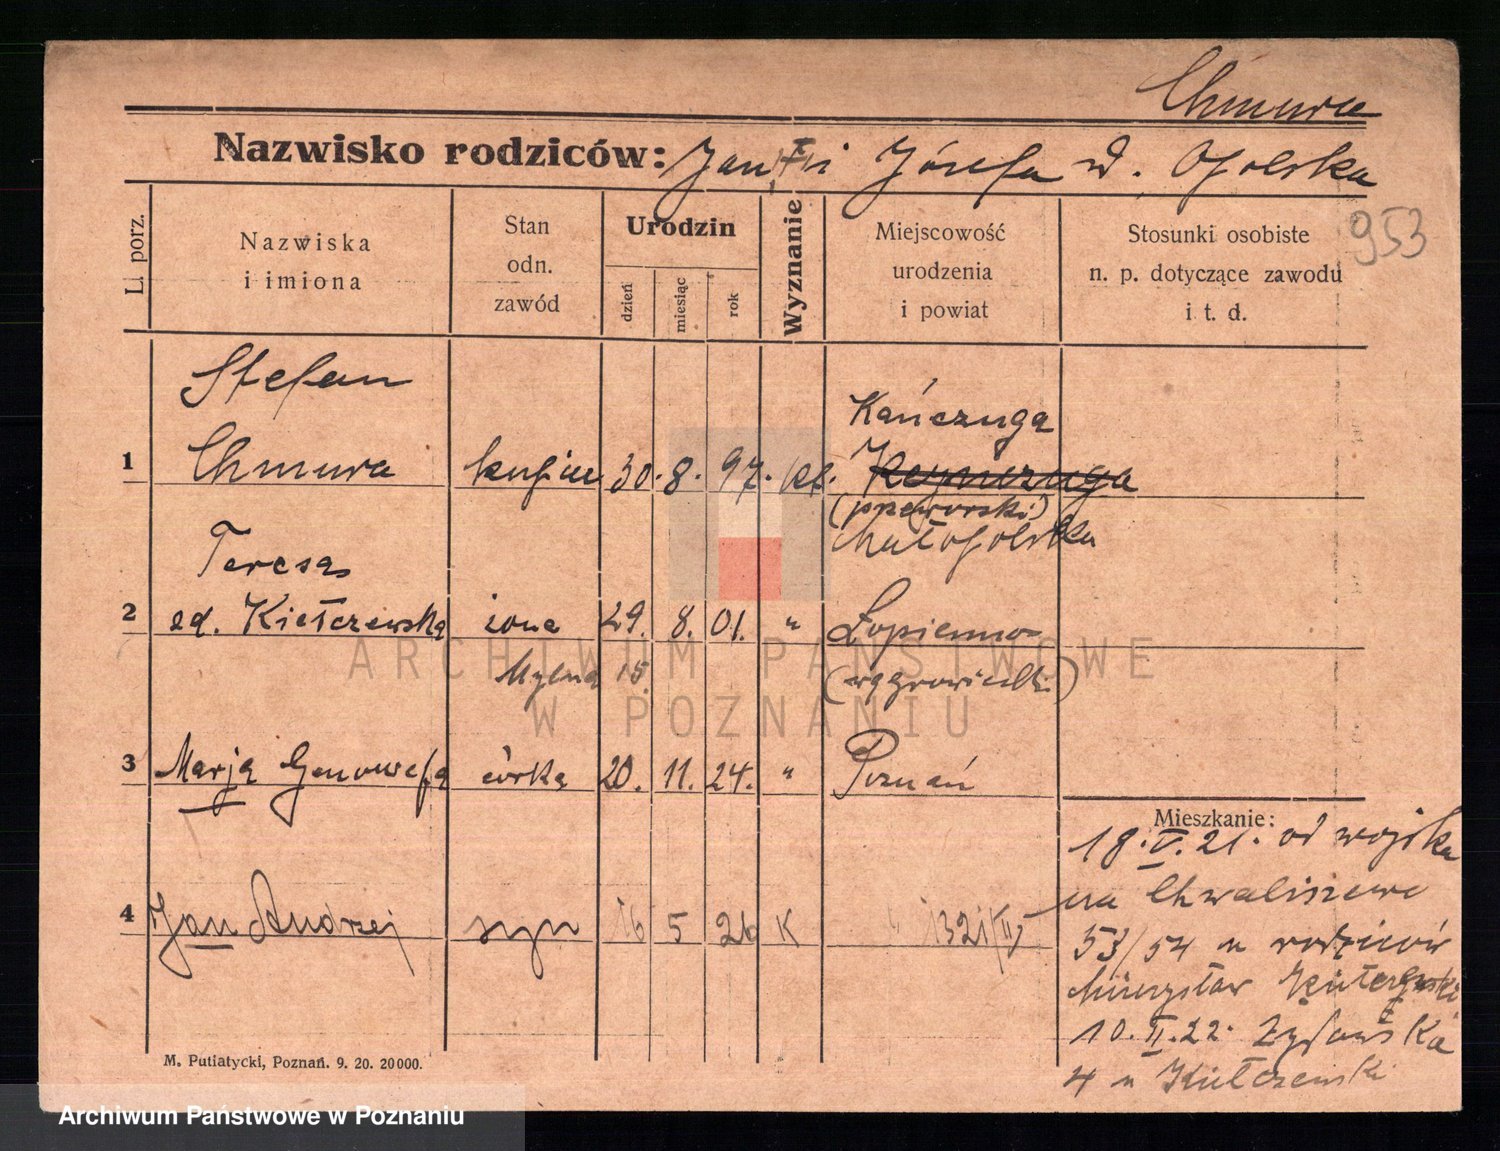 Chmura
Nazwisko rodziców: Jan i Józefa d. Opolska
953
Li. porz.
Nazwiska
i imiona
Stan
odn.
zawód
Urodzin
dzień
miesiąc
rok
Wyznanie
Miejscowość
urodzenia
i powiat
Stosunki osobiste
n. p. dotyczące zawodu
i t. d.
Stefan
Kańczuga
1 Chmura kupiec 30. 8. 97. kt.
(przeworski)
Małopolska
Teresa
2 zd. Kiełczewska żona 29. 8. 01. " Łopienno
15. (wągrowiecki)
3 Marja Genowefa córka 20. 11. 24. " Poznań
Mieszkanie:
18.V.21. od wojska
na Chwaliszewo
4 Jan Andrzej syn 16 5 26 K 1321/II
53/54 u rodziców
Mieczysław Kiełczewski
10.II.22. Zydowska
4 u Kiełczewski
M. Putiatycki, Poznań. 9. 20. 20000.
ARCHIWUM PAŃSTWOWE
W POZNANIU
Archiwum Państwowe w Poznaniu